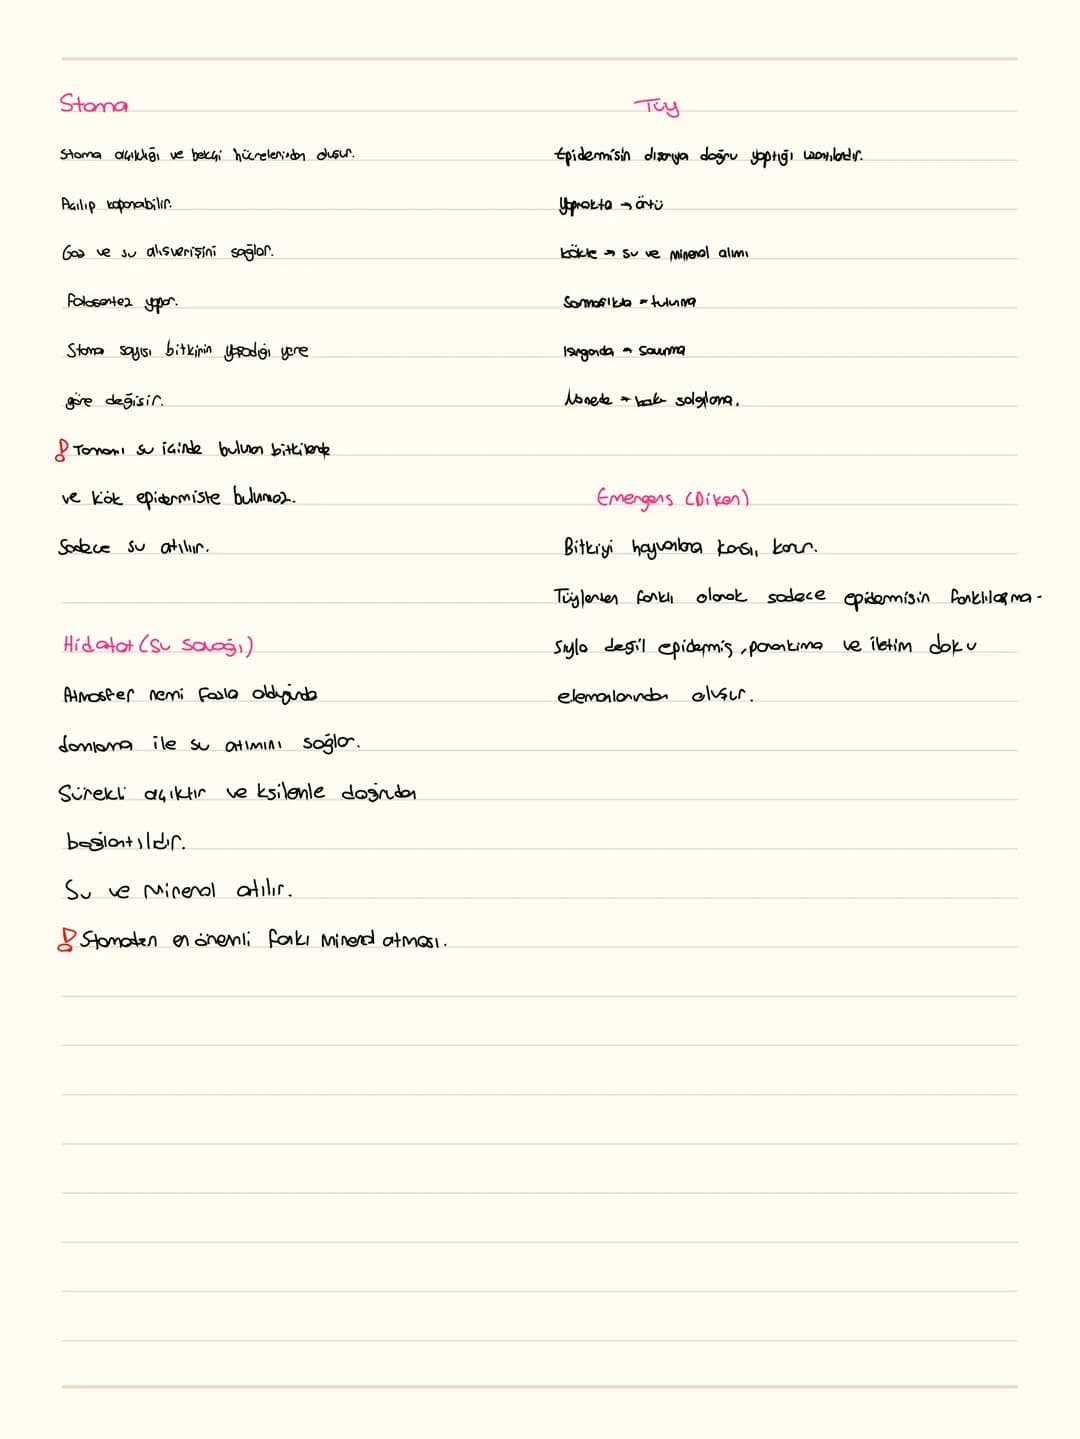 Stoma
Stoma açıklığı ve bekçi hücrelerinden oluşur.
Açılıp kapanabilir.
Gaz ve su alışverişini sağlar.
Fotosentez yapar.
Stoma sayısı bitkinin yaşadığı yere
göre değişir.
Tamamı su içinde bulunan bitkilerde
ve kök epidermiste bulunmaz.
Sadece su atılır.
Hidatot (Su Savağı)
Atmosfer nemi fazla olduğunda
damlama ile su atımını sağlar.
Sürekli açıktır ve ksilemle doğrudan
bağlantılıdır.
Su ve Mineral atılır.
Stomadan en önemli farkı mineral atması.
Tüy
Epidermisin dışarıya doğru yaptığı uzantılardır.
Yaprakta → örtü
Kökte → su ve mineral alımı
Sarmaşıkta → tutunma
Isırganda → Savunma
Nanede → koku salgılama.
Emergens (Diken)
Bitkiyi hayvanlara karşı korur.
Tüylerden farklı olarak sadece epidermisin farklılaşma-
sıyla değil epidermis, parankima ve iletim doku
elemanlarından oluşur.